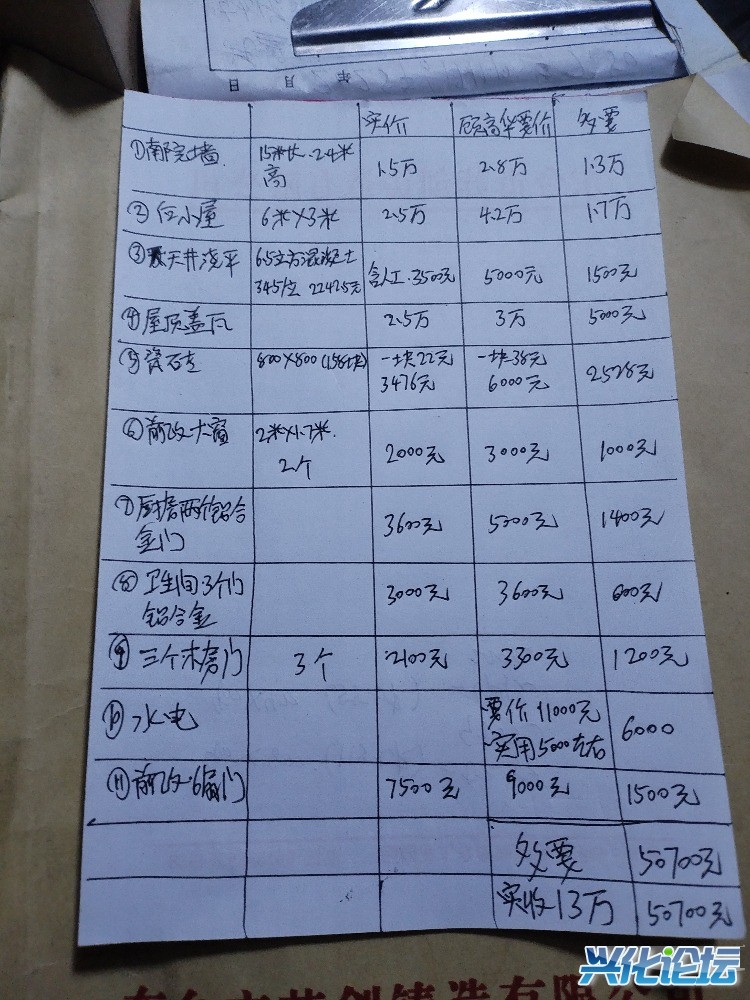 年 月 日
实价 顾高华要价 多要
①南院墙 15米长·2.4米高 1.5万 2.8万 1.3万
②后小屋 6米×3米 2.5万 4.2万 1.7万
③天井浇平 6.5立方混凝土 含人工·3500元 5000元 1500元
345/立 2242.5元
④屋顶盖瓦 2.5万 3万 5000元
⑤瓷石专 800×800(158块) 一块22元 一块38元 2528元
3476元 6000元
⑥前改大窗 2米×1.7米· 2000元 3000元 1000元
2个
⑦厨房两个铝合 3600元 5000元 1400元
金门
⑧卫生间·3个门 3000元 3600元 600元
铝合金
⑨三个木房门 3个 2100元 3300元 1200元
⑩水电 要价11000元 6000
实用5000左右
⑪前改·6扇门 7500元 9000元 1500元
多要 50700元
实收13万 50700元
兴化论坛